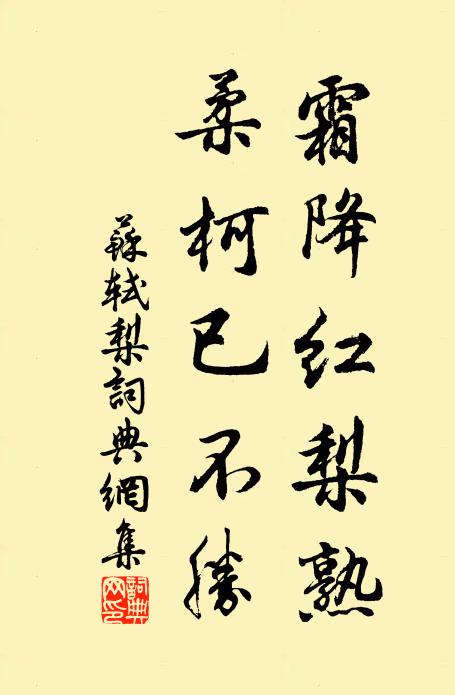 霜降红梨熟
柔柯已不勝
蘇軾梨詞典網集
詞典網印